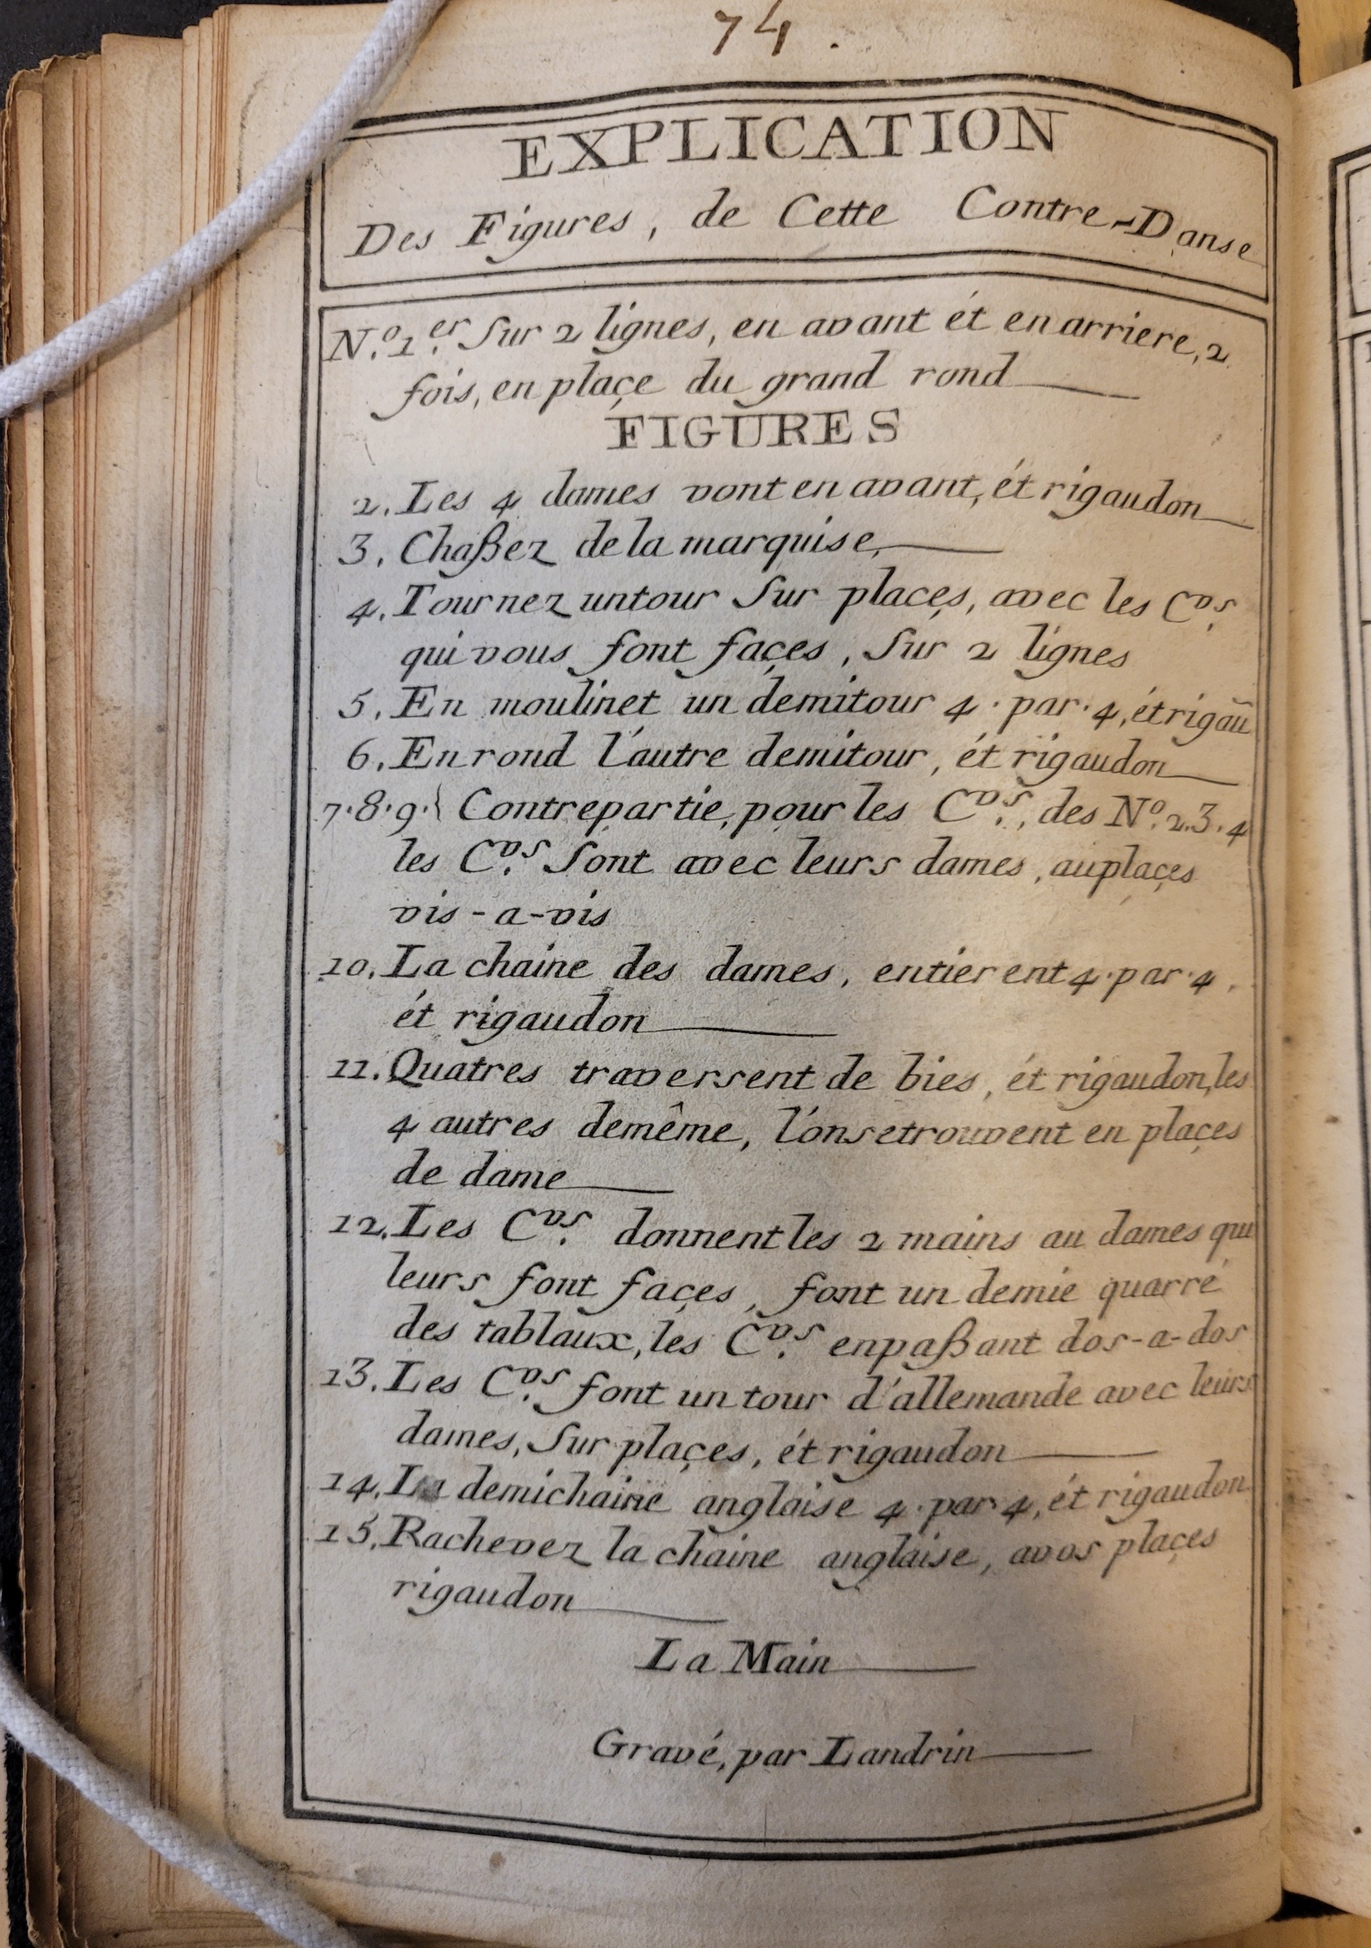 74.
EXPLICATION
Des Figures, de Cette Contre-Danse
N.º 1.er Sur 2 lignes, en avant ét en arriere, 2
fois, en plaçe du grand rond
FIGURES
2. Les 4 dames vont en avant, ét rigaudon
3. Chaßez de la marquise,
4. Tournez un tour Sur places, avec les C.vs
qui vous font façes, Sur 2 lignes
5. En moulinet un demi tour 4 · par · 4, ét rigaū
6. En rond l'autre demi tour, ét rigaudon
7·8·9·{ Contrepartie, pour les C.vs, des Nº. 2.3.4
les C.vs Sont avec leurs dames, au plaçes
vis-a-vis
10. La chaine des dames, entierent 4·par·4,
ét rigaudon
11. Quatres traversent de bies, ét rigaudon, les
4 autres demême, l'on se trouvent en plaçes
de dame
12. Les C.vs donnent les 2 mains au dames qui
leurs font façes, font un demie quarré
des tablaux, les C.vs en paßant dos-a-dos
13. Les C.vs font un tour d'allemande avec leurs
dames, Sur plaçes, ét rigaudon
14. La demi chaine anglaise 4·par·4, ét rigaudon
15. Rachevez la chaine anglaise, a vos plaçes
rigaudon
La Main
Gravé, par Landrin